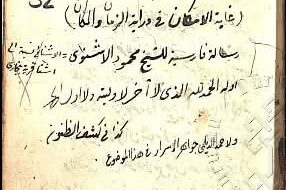 (غاية الامكان في دراية الزمان والمكان)
رسالة فارسية للشيخ محمود الاشنوى =
اوله الحمد لله الذى لا آخر لاوليته ولا اول
كذا في كشف الظنون
جواهر الاسرار في هذا الموضوع